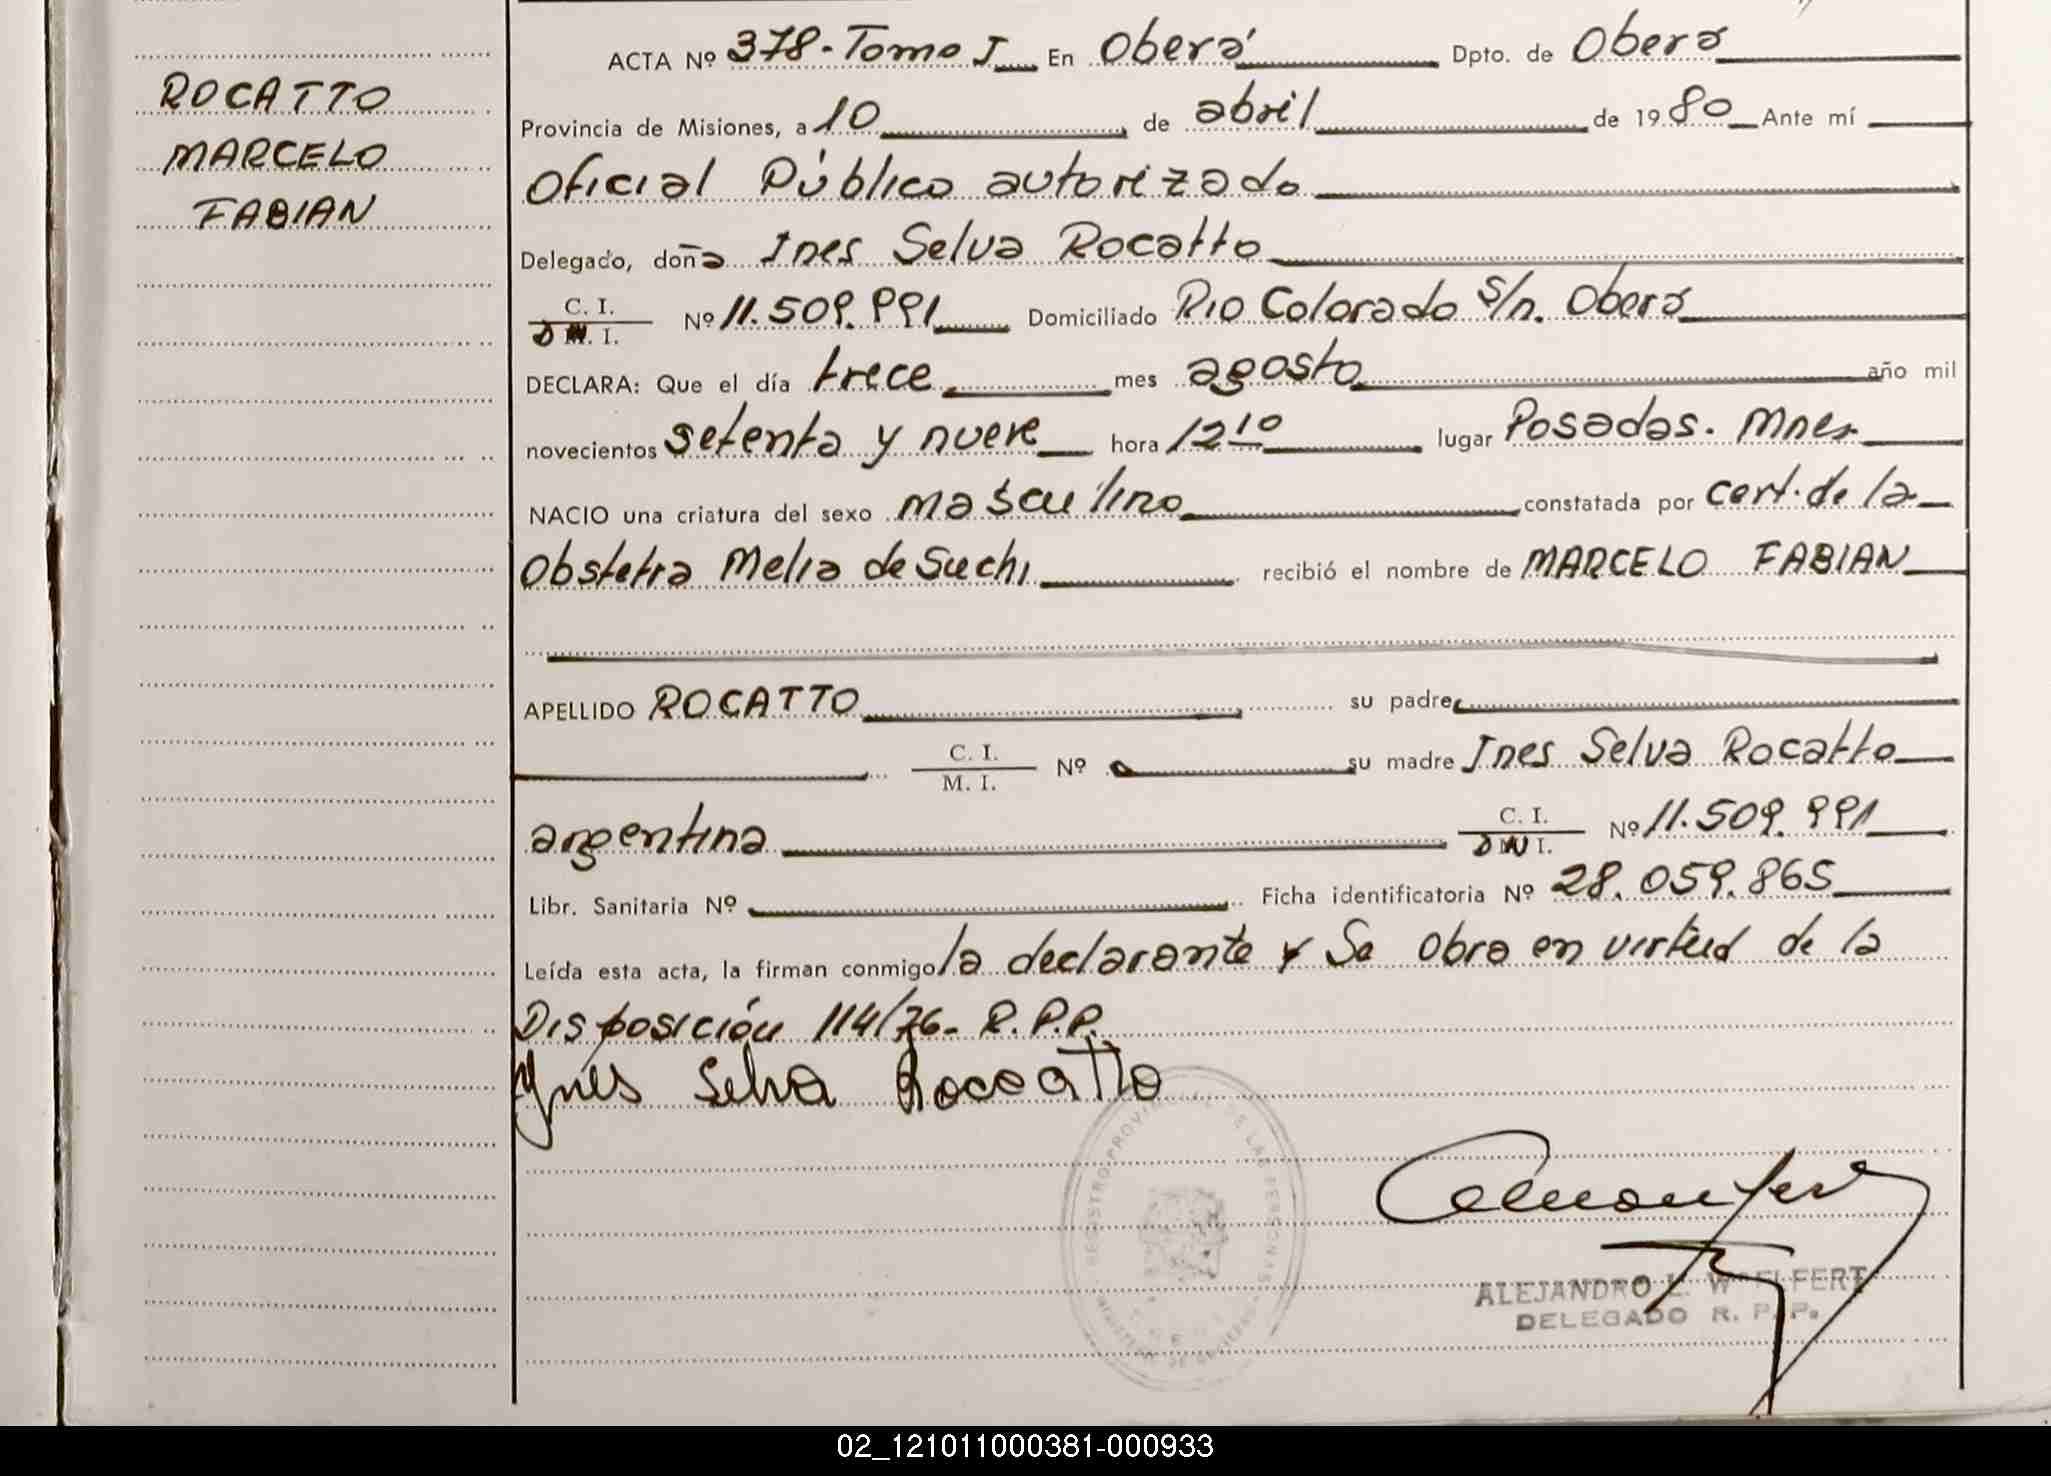 ROCATTO
MARCELO
FABIAN
ACTA Nº 378-Tomo I En Oberá Dpto. de Oberá
Provincia de Misiones, a 10 de abril de 1980 Ante mí
Oficial Público autorizado
Delegado, doña Ines Selva Rocatto
C. I.
D N. I. Nº 11.509.991 Domiciliado Rio Colorado s/n. Oberá
DECLARA: Que el día trece mes agosto año mil
novecientos setenta y nueve hora 12 10 lugar Posadas. Mnes.
NACIO una criatura del sexo masculino constatada por cert. de la
Obstetra Melia de Suchi recibió el nombre de MARCELO FABIAN
APELLIDO ROCATTO su padre
C. I.
M. I. Nº su madre Ines Selva Rocatto
argentina C. I.
D N I. Nº 11.509.991
Libr. Sanitaria Nº Ficha identificatoria Nº 28.059.865
Leída esta acta, la firman conmigo la declarante y Se obra en virtud de la
Disposición 114/76- R.P.P.
Ynes Selva Rocatto
REGISTRO PROVINCIAL DE LAS PERSONAS
ALEJANDRO L. WOELFERT
DELEGADO R. P. P.
02_121011000381-000933